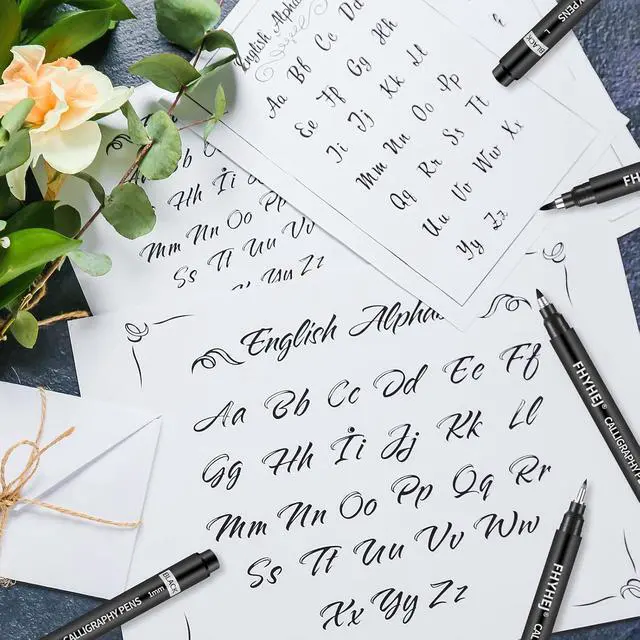 English Alphabet
Aa Bb Cc Dd
Ee Ff Gg Hh
Ii Jj Kk Ll
Mm Nn Oo Pp
Qq Rr Ss Tt
Uu Vv Ww Xx
Yy Zz
Hh Ii
Mm Nn Oo Pp
Ss Tt Uu Vv
Zz
English Alphab
Aa Bb Cc Dd Ee Ff
Gg Hh Ii Jj Kk Ll
Mm Nn Oo Pp Qq Rr
Ss Tt Uu Vv Ww
Xx Yy Zz
PENS
BLACK
FH
FHYHEJ® CALLIGRAPHY
FHYHEJ®
CALLIGRAPHY PENS 1mm BLACK